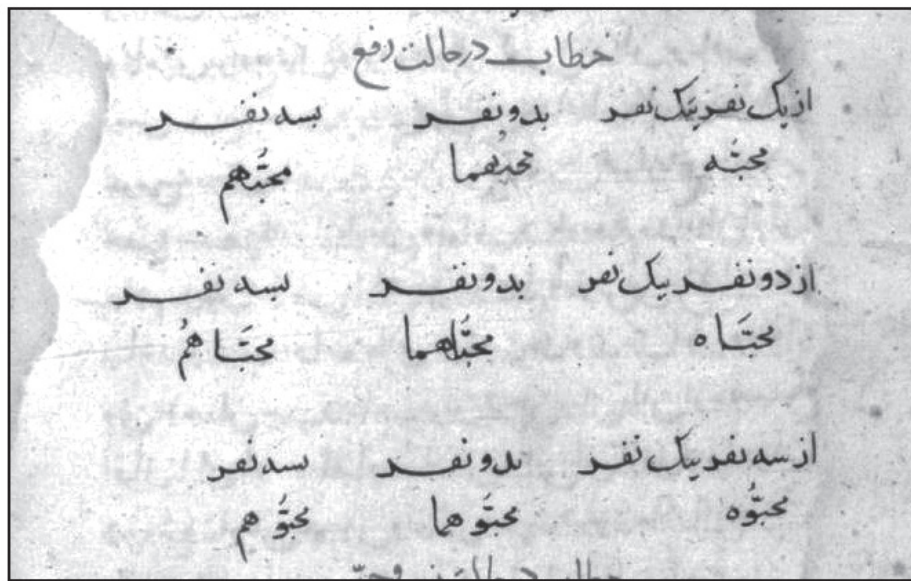 خطاب در حالت رفع
از یک نفر بیک نفر بدو نفر بسه نفر
محبُّه محبُّهما محبُّهم
از دو نفر بیک نفر بدو نفر بسه نفر
محبَّاه محبَّاهما محبَّاهُم
از سه نفر بیک نفر بدو نفر بسه نفر
محبُّوه محبُّوهما محبُّوهم